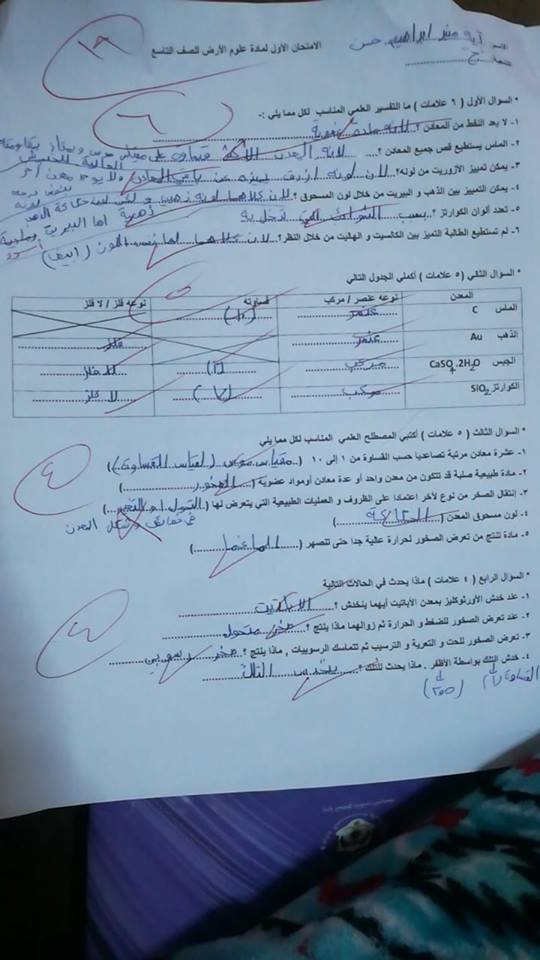 ١٩
الامتحان الأول لمادة علوم الأرض للصف التاسع
الاسم: آية منير ابراهيم حسن
الشعبة: ج
* السؤال الأول ( ٦ علامات ) ما التفسير العلمي المناسب لكل مما يلي :-
٦
١- لا يعد النفط من المعادن ؟ لأنه مادة عضوية
٢- الماس يستطيع قص جميع المعادن ؟ لأنه المعدن الأكثر قساوة على مقياس موس
٣- يمكن تمييز الأزوريت من لونه؟ لأن لونه أزرق يميزه عن باقي المعادن ولا يوجد معدن آخر
٤- يمكن التمييز بين الذهب و البيريت من خلال لون المسحوق ؟ لأن كلاهما لونه ذهبي
٥- تعدد ألوان الكوارتز ؟ بسبب الشوائب التي تدخل به
٦- لم تستطيع الطالبة التميز بين الكالسيت و الهاليت من خلال النظر؟ لأن كلاهما لهما نفس اللون (أبيض)
* السؤال الثاني ( ٥ علامات ) أكملي الجدول التالي
٥
المعدن نوعه عنصر / مركب قساوته نوعه فلز / لا فلز
الماس C عنصر (١٠)
الذهب Au عنصر فلز
الجبس CaSO4.2H2O مركب (٢) لا فلز
الكوارتز SIO2 مركب (٧) لا فلز
* السؤال الثالث ( ٥ علامات ) أكتبي المصطلح العلمي المناسب لكل مما يلي
٤
١- عشرة معادن مرتبة تصاعديا حسب القساوة من ١ إلى ١٠ (مقياس موس (لقياس القساوة))
٢- مادة طبيعية صلبة قد تتكون من معدن واحد أو عدة معادن أومواد عضوية (الصخور)
٣- إنتقال الصخر من نوع لآخر اعتمادا على الظروف و العمليات الطبيعية التي يتعرض لها (التحول أو التغير
في خصائص وشكل المعدن
٤- لون مسحوق المعدن (الحكاكة)
٥- مادة تنتج من تعرض الصخور لحرارة عالية جدا حتى تنصهر (الماغما)
* السؤال الرابع ( ٤ علامات ) ماذا يحدث في الحالات التالية
٤
١- عند خدش الأورثوكليز بمعدن الأباتيت أيهما ينخدش ؟ الأباتيت
٢- عند تعرض الصخور للضغط و الحرارة ثم زوالهما ماذا ينتج ؟ صخر متحول
٣- تعرض الصخور للحت و التعرية و الترسيب ثم تتماسك الرسوبيات , ماذا ينتج ؟ صخر رسوبي
٤- خدش التلك بواسطة الأظفر . ماذا يحدث للتلك ؟ ينخدش التلك